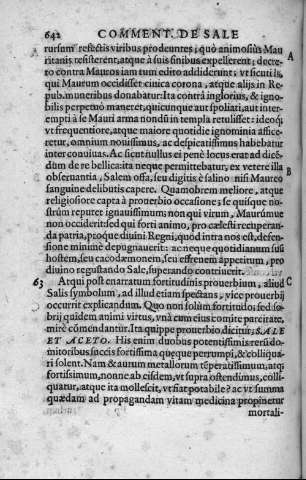 642 COMMENT. DE SALE
rursum refectis viribus prodeuntes; quò animosiùs Mau
ritanis resisterent, atque à suis finibus expellerent; decre-
to contra Mauros iam tum edito addiderunt; vt sicuti is,
qui Maurum occidisset ciuica corona, atque alijs in Re
pub. muneribus donabatur: Ita contrà inglorius, & igno-
bilis perpetuò maneret, quicunque aut spoliari, aut inter-
empti à se Mauri arma nondũ in templa retulisset: ideoq;
vt frequentiore, atque maiore quotidie ignominia affice
retur, omnium nouissimus, ac despicatissimus habebatur
inter conuiuas. Ac sicut nullus ei penè locus erat ad dicẽ
dum de re bellica: ita neque permittebatur, ex vetere illa
obseruantia, Salem ossa, seu digitis è salino nisi Maureo
sanguine delibutis capere. Quamobrem meliore, atque
religiosiore capta à prouerbio occasione; se quisque no-
strûm reputet ignauissimum; non qui virum, Maurúmue
non occiderit; sed qui forti animo, pro cælesti recuperan-
da patria, proque diuini Regni, quod intra nos est, defen-
sione minimè depugnauerit: ac neque quotidianum suũ
hostem, seu cacodæmonem, seu effrenem appetitum, pro
diuino regustando Sale, superando contriuerit.
63 Atqui post enarratum fortitudinis prouerbium, aliud
Salis symbolum, ad illud etiam spectans, vice prouerbij
occurrit explicandum. Quo non solùm fortitudo; sed so-
brij quidem animi virtus, vnà cum eius comite parcitate,
mirè cõmendantur. Ita quippe prouerbio dicitur; SALE
ET ACETO. His enim duobus potentissimis rerũ do-
mitoribus succis fortissima quæque perrumpi, & colliqua-
ri solent. Nam & aurum metallorum tẽperatissimum, atqi
fortissimum, nonne ab eisdem, vt supra ostendimus, colli-
quatur, atque ita mollescit, vt fiat potabile? ac vt summa
quædam ad propagandam vitam medicina propinetur
mortali-
A
B
C